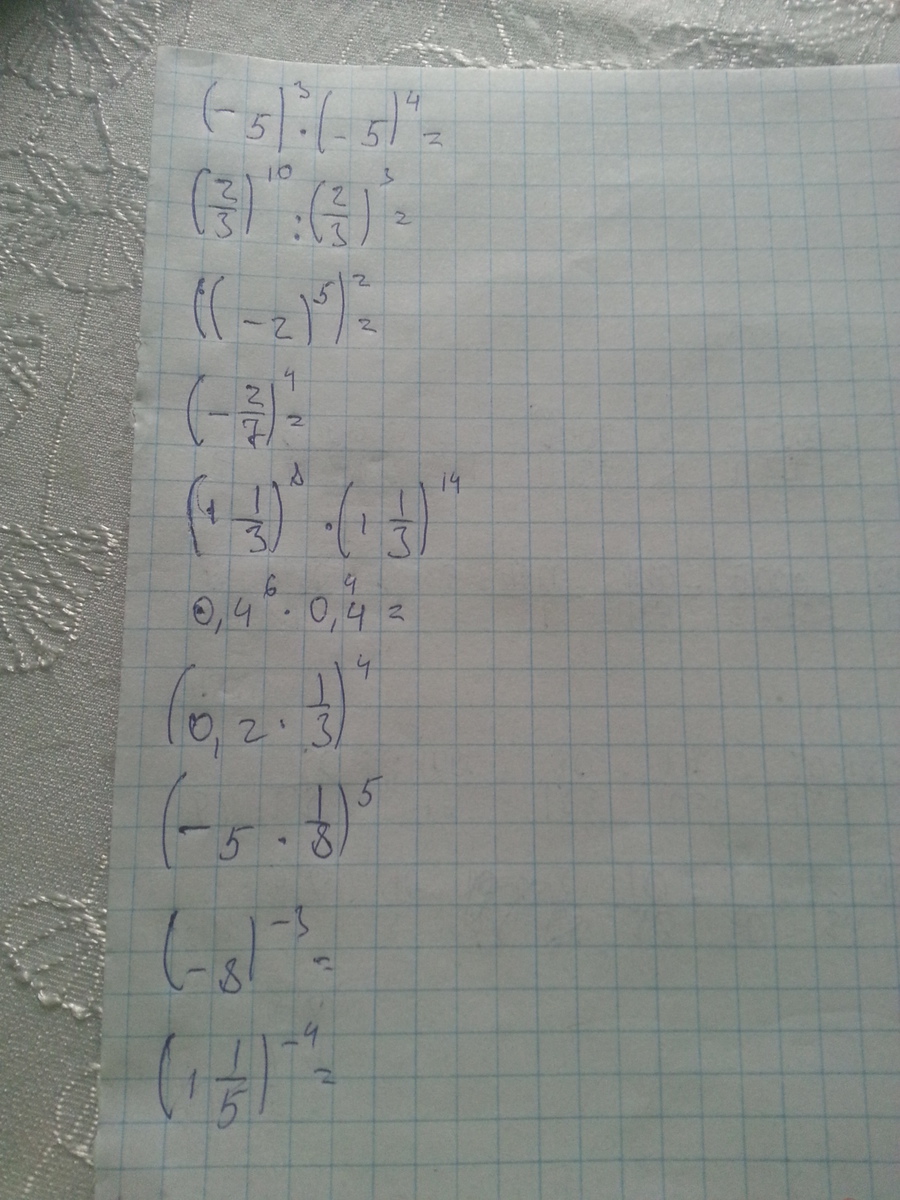 (-5)³·(-5)⁴=
(2/3)¹⁰:(2/3)³=
((-2)⁵)²=
(-2/7)⁴=
(1 1/3)⁸·(1 1/3)¹⁴
0,4⁶·0,4⁴=
(0,2·1/3)⁴
(-5·1/8)⁵
(-8)⁻³=
(1 1/5)⁻⁴=